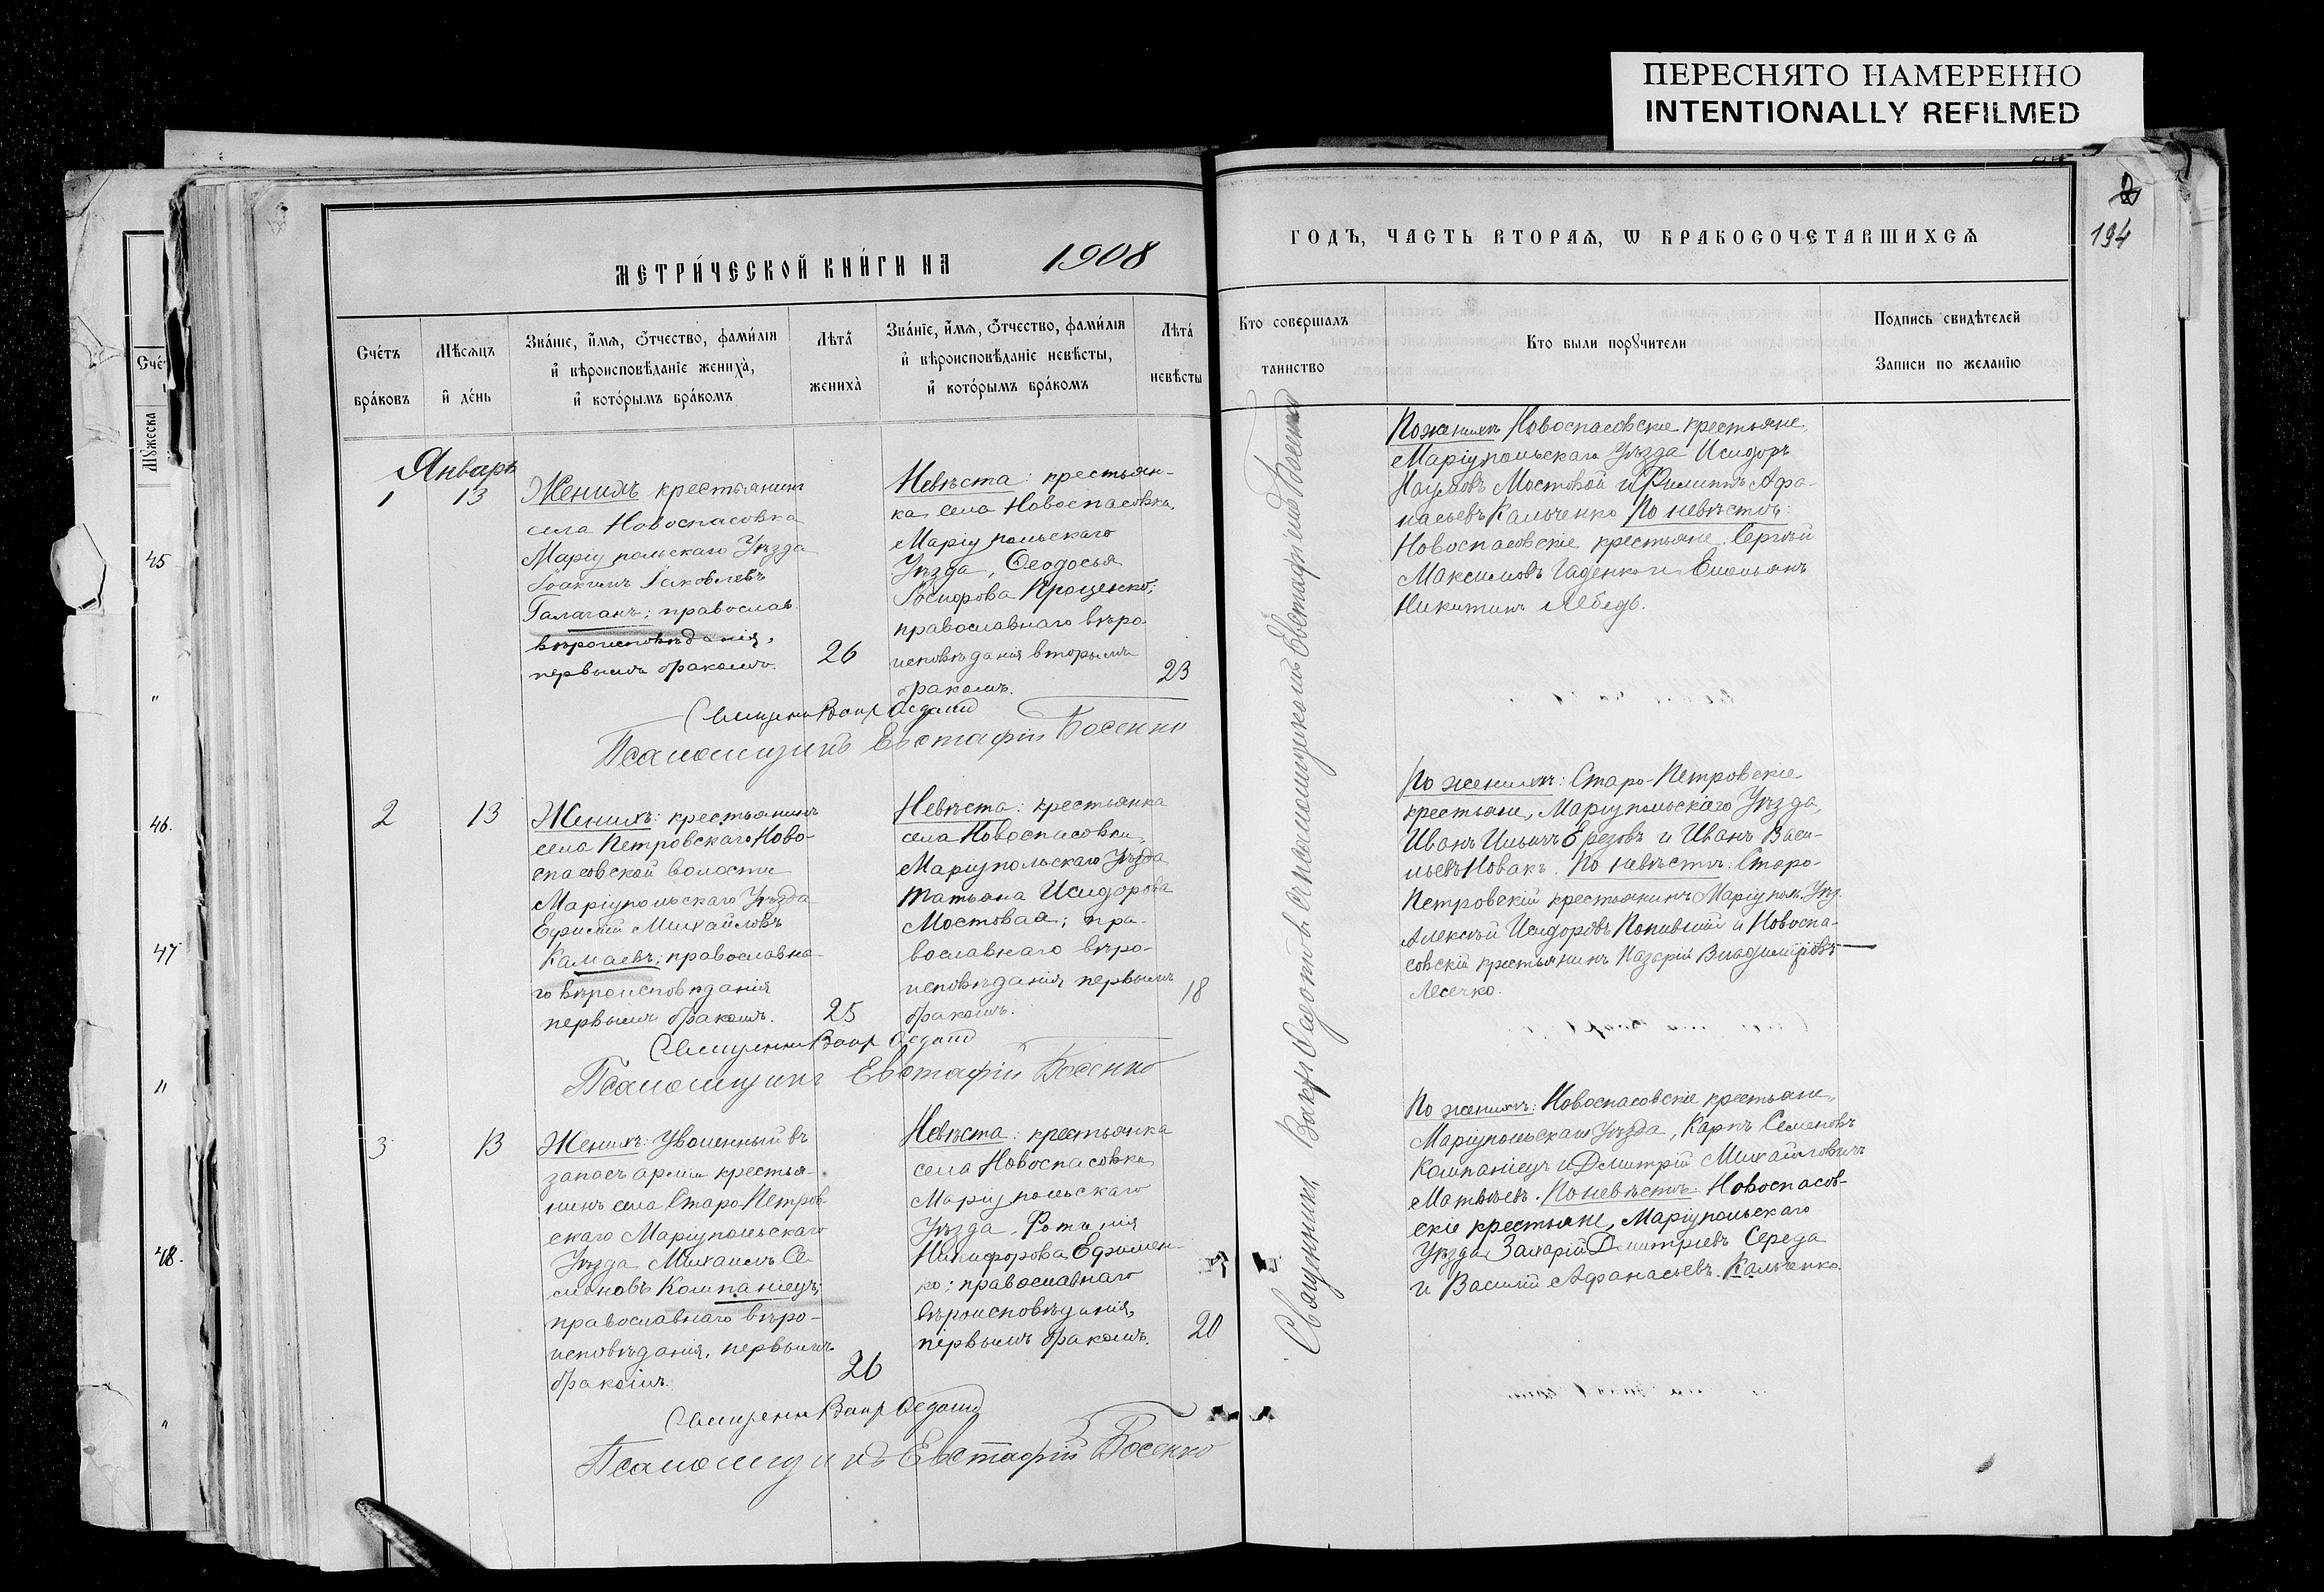 ПЕРЕСНЯТО НАМЕРЕННО
INTENTIONALLY REFILMED
2
194
МЕТРИ́ЧЕСКОЙ КНИ́ГИ НА 1908
ГОДЪ, ЧАСТЬ ВТОРАѦ, Ѡ БРАКОСОЧЕТАВШИХСѦ
Сче́тъ
бра́ковъ
Мѣ́сѧцъ
и҆ де́нь
Зва́нїе, и҆́мѧ, ѻ҆́тчество, фами́лїѧ
и҆ вѣроисповѣ́данїе жениха̀,
и҆ кото́рымъ бра́комъ
Лѣта̀
жениха̀
Зва́нїе, и҆́мѧ, ѻ҆́тчество, фами́лїѧ
и҆ вѣроисповѣ́данїе невѣ́сты,
и҆ кото́рымъ бра́комъ
Лѣта̀
невѣ́сты
Кто совершалъ
таинство
Кто были порꙋчители
Подпись свидѣтелей
Записи по желанію
Сче́
Мꙋ́жеска
45
"
46.
47
"
48.
"
Январь
1
13
Женихъ крестьянинъ
села Новоспасовка
Маріупольскаго Уѣзда
Іоакимъ Іаковлевъ
Галаганъ; православ.
вѣроисповѣданія,
первымъ бракомъ.
26
Невѣста: крестьян-
ка села Новоспасовки,
Маріупольскаго
Уѣзда, Ѳеодосья
Проценко;
православнаго вѣро
исповѣданія вторымъ
бракомъ.
23
Псаломщикъ Евстафій Босенко
По женихѣ Новоспасовскіе крестьяне,
Маріупольскаго Уѣзда Исидоръ
Наумовъ Мостовой и Филиппъ Афа-
насьевъ Кальченко По невѣстѣ:
Новоспасовскіе крестьяне: Сергѣй
Максимовъ Гаденко и Емельянъ
Никитинъ Лебедь.
2
13
Женихъ: крестьянинъ
села Петровскаго Ново-
спасовской волости
Маріупольскаго Уѣзда
Ефимій Михайловъ
Камаевъ; православна-
го вѣроисповѣданія
первымъ бракомъ.
25
Невѣста: крестьянка
села Новоспасовки,
Маріупольскаго Уѣзда
Татьяна Исидорова
Мостовая; пра-
вославнаго вѣро-
исповѣданія первымъ
бракомъ.
18
Псаломщикъ Евстафій Босенко
По женихѣ: Старо-Петровскіе
крестьяне, Маріупольскаго Уѣзда,
Иванъ Ильичъ Ерезовъ и Иванъ Васи-
льевъ Новакъ. По невѣстѣ: Старо-
Петровскій крестьянинъ Маріупол. Уѣз.
Алексѣй Исидоровъ и Новоспа-
совскій крестьянинъ Назарій Владиміровъ
Лесечко.
3
13
Женихъ: Уволенный въ
запасъ арміи крестья-
нинъ села Старо Петров-
скаго Маріупольскаго
Уѣзда Михаилъ Се-
меновъ Компаніецъ;
православнаго вѣро-
исповѣданія, первымъ
бракомъ.
26
Невѣста: крестьянка
села Новоспасовки
Маріупольскаго
Уѣзда, Фотинія
Никифорова Ефимен-
ко; православнаго
вѣроисповѣданія,
первымъ бракомъ.
20
Псаломщикъ Евстафій Босенко
По женихѣ: Новоспасовскіе крестьяне,
Маріупольскаго Уѣзда, Карпъ Семеновъ
Компаніецъ и Дмитрій Михайловичъ
Матвѣевъ. По невѣстѣ: Новоспасов-
скіе крестьяне, Маріупольскаго
Уѣзда Захарій Дмитріевъ Середа
и Василій Афанасьевъ Кальченко.
Священникъ съ псаломщикомъ Евстафіемъ Босенко